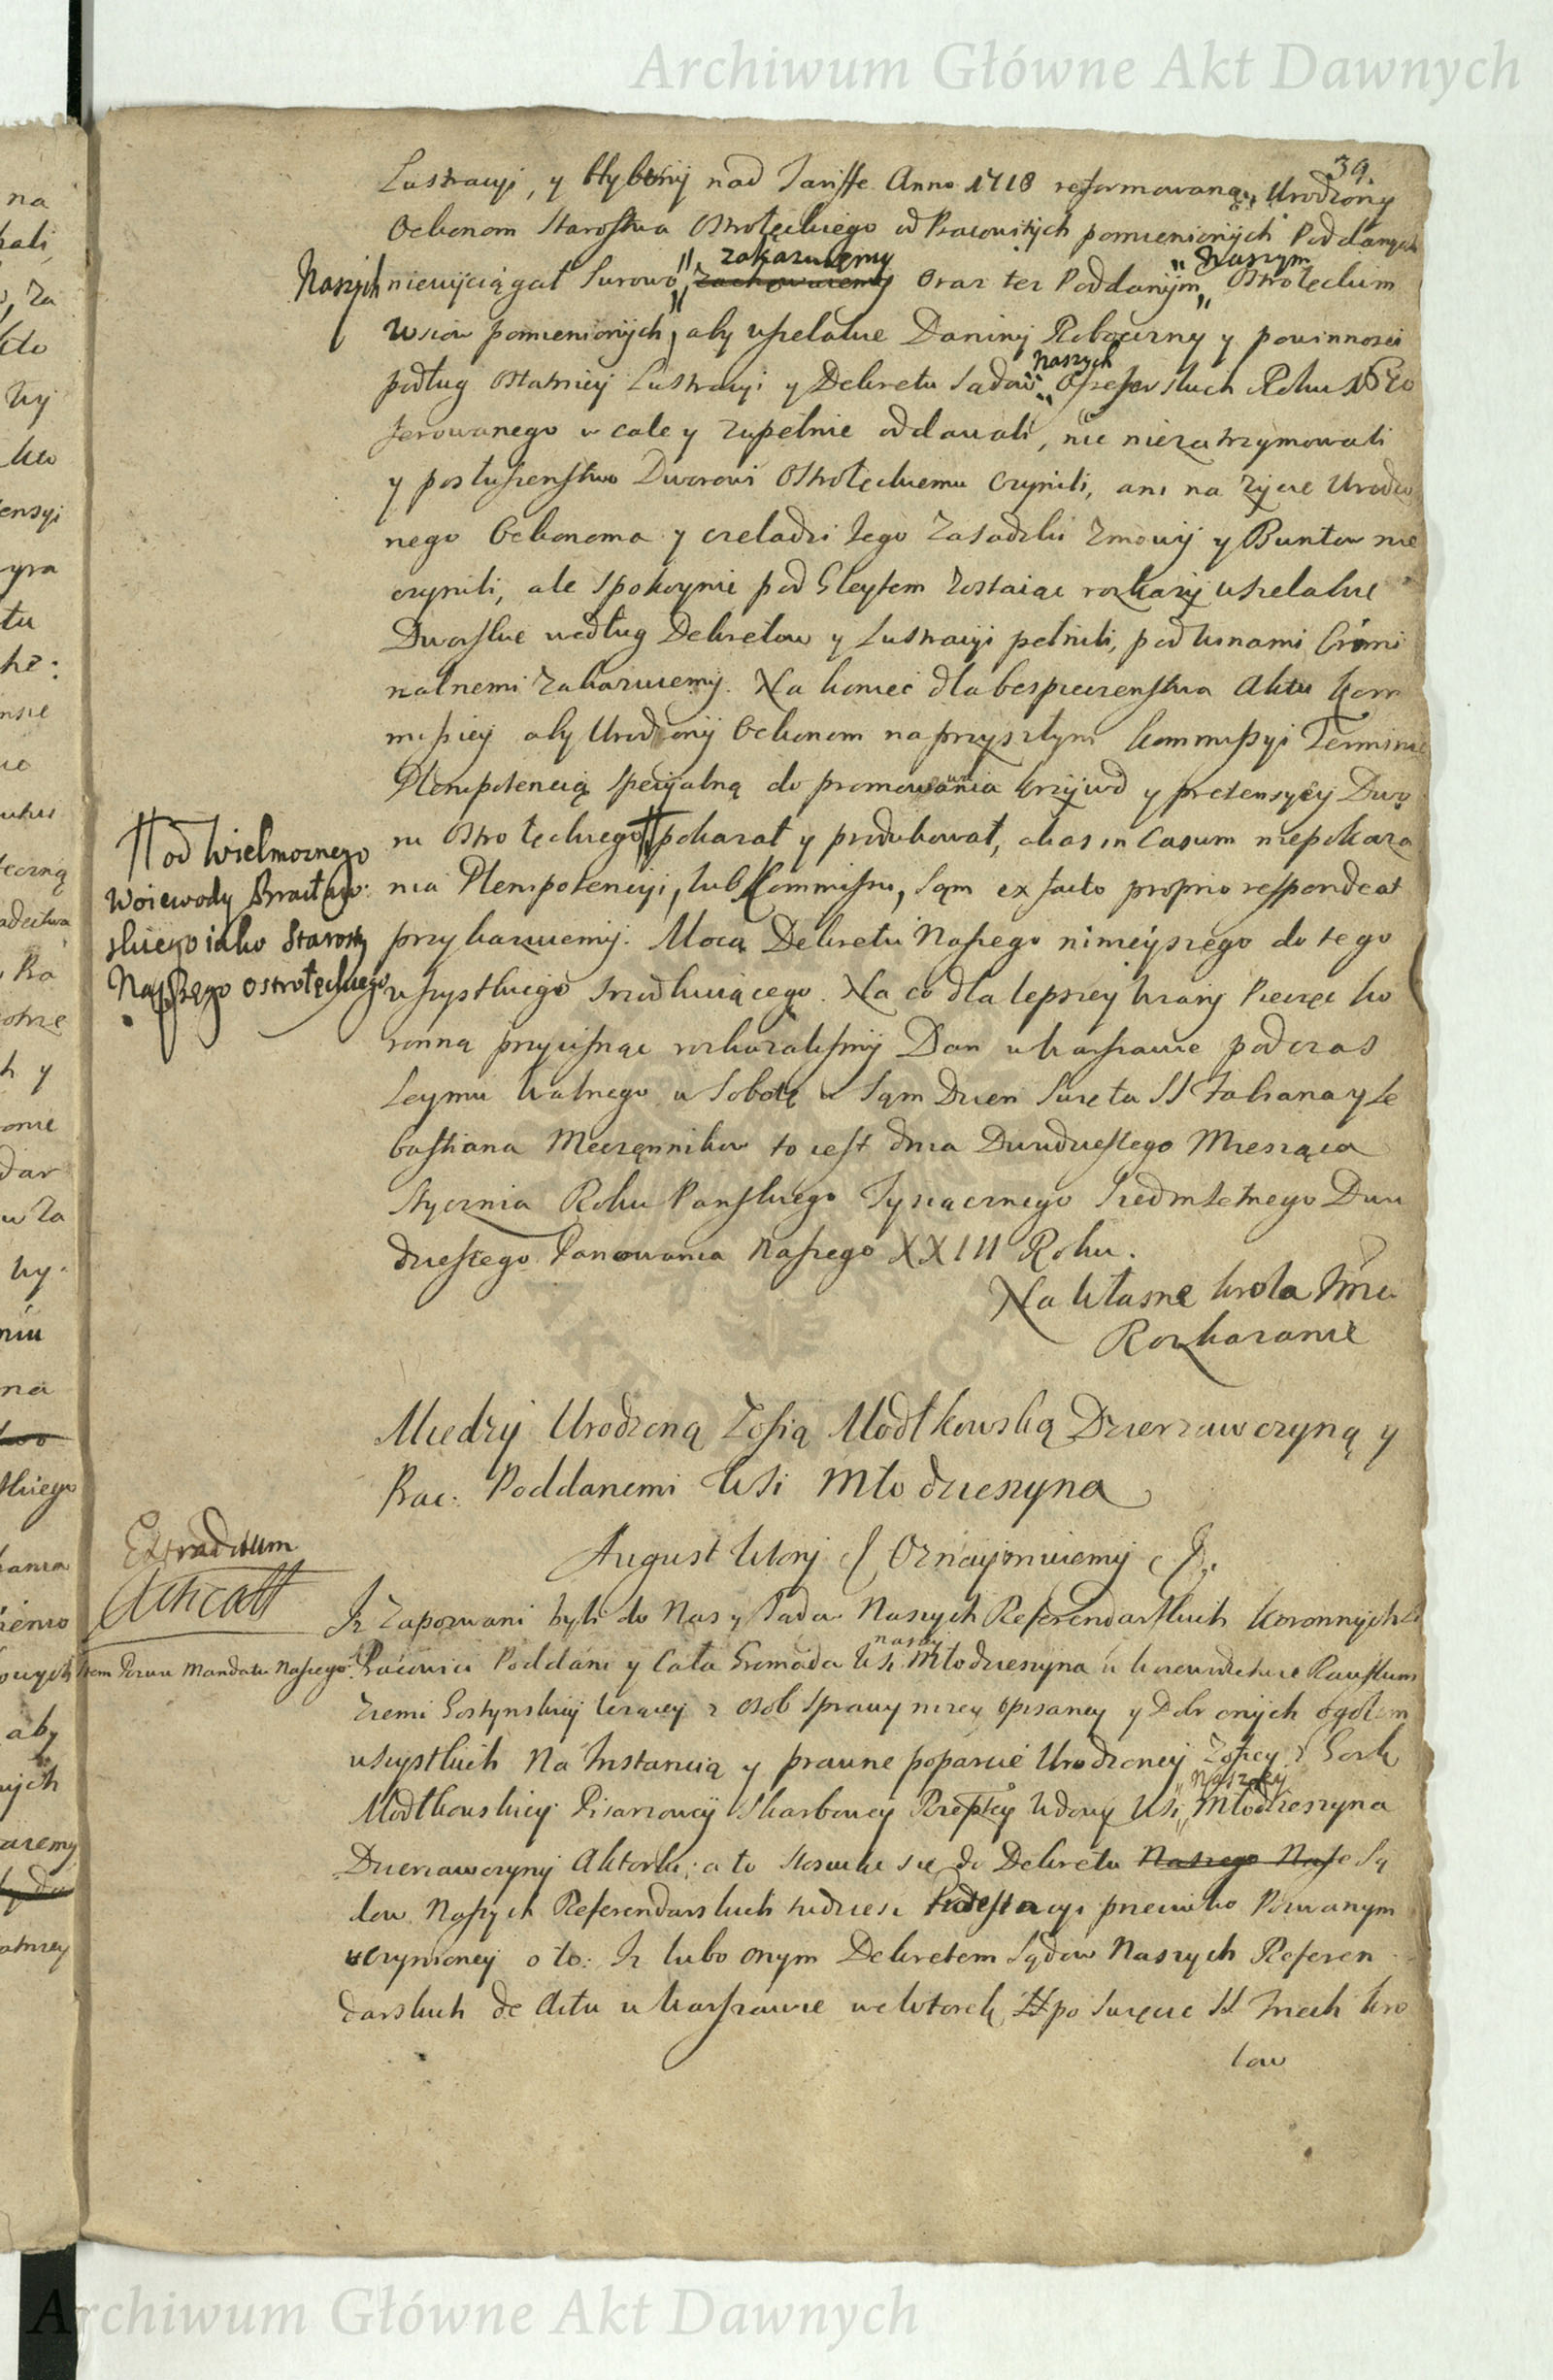 Archiwum Główne Akt Dawnych
39.
Lustracyi, y Hyberny nad Tariffe Anno 1718 reformowaną, Urodzony
Oekonom Starostwa Ostrołęckiego od Pracowitych pomienionych Poddanych
Naszych niewyciągał Surowo, zakazuiemy Oraz tez Poddanym Naszym Ostrołęckim
Wsiow pomienionych, aby wszelakie Daniny Robocizny y powinnosci
podług Ostatniey Lustracyi y Dekretu Sądow Naszych Assessorskich Roku
ferowanego w cale y zupełnie oddawali, nic niezatrzymowali
y posłuszenstwo Dworowi Ostrołęckiemu czynili, ani na zycie Urodzo
nego Oekonoma y czeladzi Jego Zasadzki Zmowy y Buntow nie
czynili, ale Spokoynie pod Gleytem zostaiąc rozkazy wszelakie
Dworskie według Dekretow y Lustracyi pełnili, pod winami Crimi
nalnemi zakazuiemy. Na koniec dla bespieczenstwa Aktu Kom
missiey aby Urodzony Oekonom na przyszłym Kommissyi Terminie
Plenipotencią specyalną do promowania krzywd y pretensyey Dwo
ru Ostrołęckiego pokazał y produkował, alias in Casum niepokaza
nia Plenipotencyi, lub Kommissu, sąm ex facto proprio respondeat
przykazuiemy. Mocą Dekretu Naszego ninieyszego do tego
wszystkiego srzodkuiącego. Na co dla lepszey wiary Pieczęć Ko
ronną przycisnąć rozkazalismy Dan w Warszawie podczas
Seymu Walnego w Sobotę w Sąm Dzien Swięta SS Fabiana y Se
bastiana Męczęnnikow to iest dnia Dwudziestego Miesiąca
Stycznia Roku Panskiego Tysiącznego Siedmsetnego Dwu
dziestego Panowania Naszego XXIII Roku.
Na Własne Krola Jmci
Rozkazanie
od Wielmoznego
Woiewody Bracław
skiego iako Starosty
Naszego Ostrołęckiego
Miedzy Urodzoną Zofią Modłkowską Dzierzawczyną y
Prac: Poddanemi Wsi Młodzieszyna
August Wtory Oznaymuiemy
Extraditum
Iz Zapozwani byli do Nas y Sądow Naszych Referendarskich Koronnych
tem Pozwu Mandatu Naszego Pracowici Poddani y Cała Gromada Wsi naszey Młodzieszyna w Woiewodztwie Rawskim
Ziemi Gostynskiey lezącey z osob Sprawy nizey opisaney y Dobr onych ogołem
wszystkich Na Instancią y prawne poparcie Urodzoney Zofiey z
Modłkowskiey Pisarzowey Skarbowey Wdowy Wsi Naszey Młodzieszyna
Dzierzawczyny Aktorki: a to stosuiąc się do Dekretu Naszego Nasz Są
dow Naszych Referendarskich tudziesz Protestacyi przeciwko Pozwanym
uczynioney o to: Iz lubo onym Dekretem Sądow Naszych Referen
darskich de Actu w Warszawie we Wtorek po Swięcie SS Trzech Kro
low
Archiwum Główne Akt Dawnych